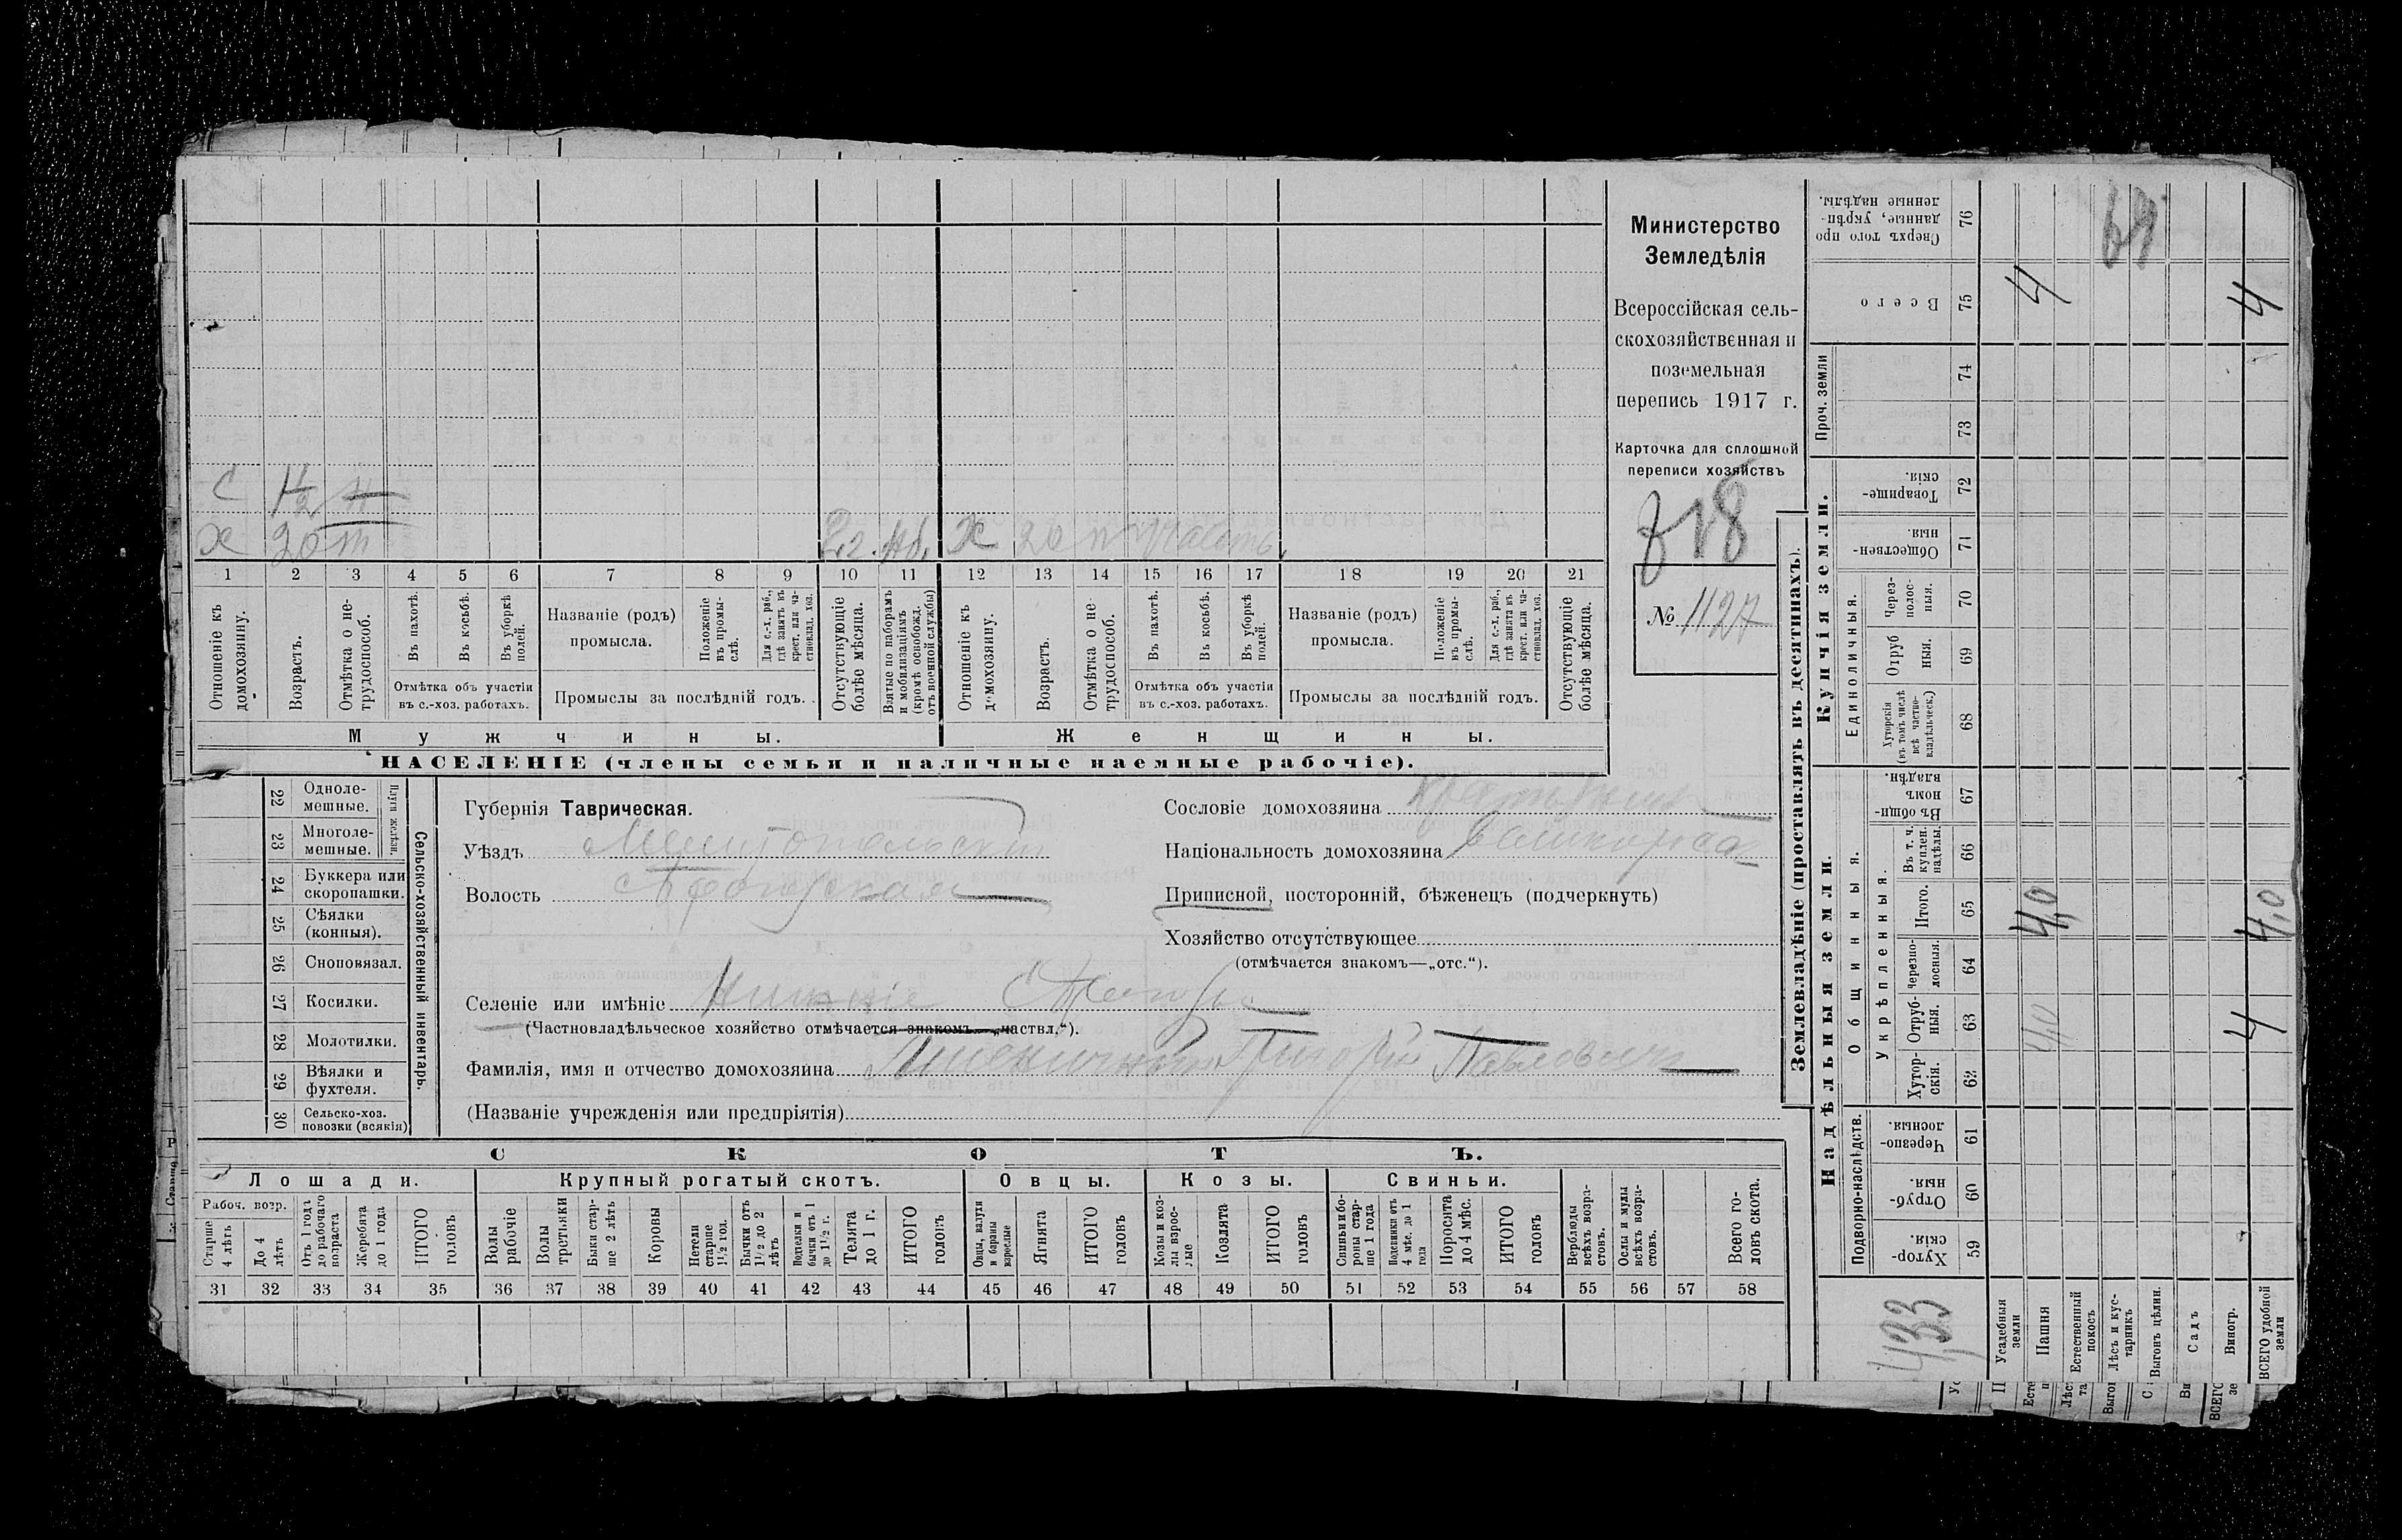 Министерство
Земледѣлія
Всероссійская сель-
скохозяйственная и
поземельная
перепись 1917 г.
Карточка для сплошной
переписи хозяйствъ
718
№ 1127
С
Х 20
Х 20
1 2 3 4 5 6 7 8 9 10 11 12 13 14 15 16 17 18 19 20 21
Отношеніе къ домохозяину.
Возрастъ.
Отмѣтка о не-трудоспособ.
Въ пахотѣ.
Въ косьбѣ.
Въ уборкѣ полей.
Названіе (родъ) промысла.
Положеніе въ промы-слѣ.
Для с.-х. раб., гдѣ занятъ въ крест. или ча-стновлад. хоз.
Отсутствующіе болѣе мѣсяца.
Взятые по наборамъ и мобилизаціямъ (кромѣ освобожд. отъ военной службы)
Отношеніе къ домохозяину.
Возрастъ.
Отмѣтка о не трудоспособ.
Въ пахотѣ.
Въ косьбѣ.
Въ уборкѣ полей.
Названіе (родъ) промысла.
Положеніе въ промы-слѣ.
Для с.-х. раб., гдѣ занята въ крест. или ча-стновлад. хоз.
Отсутствующіе болѣе мѣсяца.
Отмѣтка объ участіи въ с.-хоз. работахъ.
Промыслы за послѣдній годъ.
Отмѣтка объ участіи въ с.-хоз. работахъ.
Промыслы за послѣдній годъ.
Мужчины.
Женщины.
НАСЕЛЕНІЕ (члены семьи и наличные наемные рабочіе).
22 Одноле-мешные.
23 Многоле-мешные.
Плуги желѣзн.
24 Буккера или скоропашки.
25 Сѣялки (конныя).
26 Сноповязал.
27 Косилки.
28 Молотилки.
29 Вѣялки и фухтеля.
30 Сельско-хоз. повозки (всякія)
Сельско-хозяйственный инвентарь.
Губернія Таврическая.
Уѣздъ Мелитопольскій
Волость
Селеніе или имѣніе Нижніе
(Частновладѣльческое хозяйство отмѣчается знакомъ—„частвл.“).
Фамилія, имя и отчество домохозяина Пшеничный Григорій Павловичъ
(Названіе учрежденія или предпріятія)
Сословіе домохозяина
Національность домохозяина
Приписной, посторонній, бѣженецъ (подчеркнуть)
Хозяйство отсутствующее
(отмѣчается знакомъ—„отс.“).
СКОТЪ.
Лошади.
Крупный рогатый скотъ.
Овцы.
Козы.
Свиньи.
Рабоч. возр.
Старше 4 лѣтъ
До 4 лѣтъ
Отъ 1 года до рабочаго возраста
Жеребята до 1 года
ИТОГО головъ
Волы рабочіе
Волы третьяки
Быки стар-ше 2 лѣтъ
Коровы
Нетели старше 1½ год.
Бычки отъ 1½ до 2 лѣтъ
Подтелки и бычки отъ 1 до 1½ г.
Телята до 1 г.
ИТОГО головъ
Овцы, валухи и бараны взрослые
Ягнята
ИТОГО головъ
Козы и коз-лы взрос-лые
Козлята
ИТОГО головъ
Свиньи и бо-роны стар-ше 1 года
Подсвинки отъ 4 мѣс. до 1 года
Поросята до 4 мѣс.
ИТОГО головъ
Верблюды всѣхъ возра-стовъ.
Ослы и мулы всѣхъ возра-стовъ.
Всего го-ловъ скота.
31 32 33 34 35 36 37 38 39 40 41 42 43 44 45 46 47 48 49 50 51 52 53 54 55 56 57 58
Землевладѣніе (проставлять въ десятинахъ).
Купчія земли.
Надѣльныя земли.
Сверхъ того про данные, укрѣп-ленные надѣлы. 76
Всего 75 4 4
Проч. земли 74 73
Товарище-скія. 72
Обществен-ныя. 71
Единоличныя.
Через-полос-ныя. 70
Отруб ныя. 69
Хуторскія (въ томъ числѣ всѣ частно-владѣльческ.) 68
Общинныя.
Въ общи-номъ владѣн. 67
Укрѣпленныя.
Въ т. ч. куплен. надѣлы. 66
Итого. 65 4,0 4,0
Черезпо-лосныя. 64
Отруб-ныя. 63 4,0 4
Хутор-скія. 62
Подворно-наслѣдств.
Черезпо-лосныя. 61
Отруб-ныя. 60
Хутор-скія. 59
433
Усадебныя земли
Пашня
Естественный покосъ
Лѣсъ и кус-тарникъ
Выгонъ цѣлин.
Садъ
Виногр.
ВСЕГО удобной земли